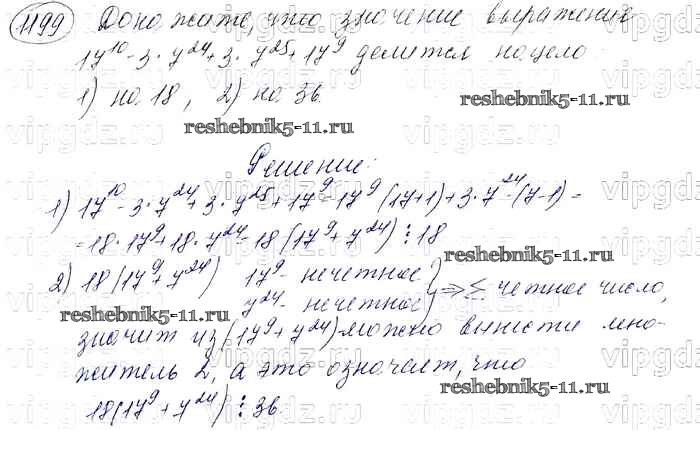 1199 Докажите, что значение выражения
17¹⁰ - 3 · 7²⁴ + 3 · 7²⁵ + 17⁹ делится нацело:
1) на 18, 2) на 36.
reshebnik5-11.ru
reshebnik5-11.ru
Решение:
1) 17¹⁰ - 3 · 7²⁴ + 3 · 7²⁵ + 17⁹ = 17⁹ (17+1) + 3 · 7²⁴ · (7-1) =
= 18 · 17⁹ + 18 · 7²⁴ = 18 (17⁹ + 7²⁴) ⋮ 18
reshebnik5-11.ru
2) 18 (17⁹ + 7²⁴) 17⁹ - нечетное
7²⁴ - нечетное } ⇒ Σ четное число,
reshebnik5-11.ru
значит из (17⁹ + 7²⁴) можно вынести мно-
житель 2, а это означает, что
reshebnik5-11.ru
18 (17⁹ + 7²⁴) ⋮ 36.
vipgdz.ru